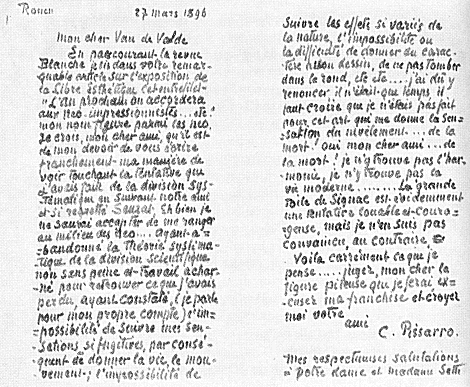 Rouen 27 mars 1896
Mon cher Van de Velde
En parcourant la revue
Blanche je lis dans votre remar-
quable article sur l'exposition de
la Libre esthétique cet entrefilet
"L'an prochain on accordera
aux néo-impressionnistes...etc"
mon nom figure parmi les néo.
Je crois, mon cher ami, qu'il est
de mon devoir de vous écrire
franchement ma manière de
voir touchant la tentative que
j'avais faite de la division Sys-
tématique en suivant notre ami
et si regretté Seurat. Eh bien je
ne saurai accepter de me ranger
au milieu des néo... ayant a-
bandonné la Théorie systéma-
tique de la division scientifique
non sans peine et travail achar-
né pour retrouver ce que j'avais
perdu, ayant constaté, (je parle
pour mon propre compte) l'im-
possibilité de suivre mes sen-
sations si fugitives, par consé-
quent de donner la vie, le mou-
vement; l'impossibilité de
Suivre les effets si variés de
la nature, l'impossibilité ou
la difficulté de donner du carac-
tère à son dessin, de ne pas tomber
dans le rond, etc etc.... j'ai dû y
renoncer, il n'était que temps, il
faut croire que je n'étais pas fait
pour cet art qui me donne la Sen-
sation du nivelement.... de la
mort! oui mon cher ami... de
la mort! je n'y trouve pas l'har-
monie, je n'y trouve pas la
vie moderne........ La grande
toile de Signac est évidemment
une tentative louable et coura-
geuse, mais je n'en suis pas
convaincu, au contraire,
Voila carrément ce que je
pense..... jugez, mon cher la
figure piteuse que je ferai ex-
cusez ma franchise et croyez
moi votre
ami
C. Pissarro.
Mes respectueuses salutations
à votre dame et madame Sethe